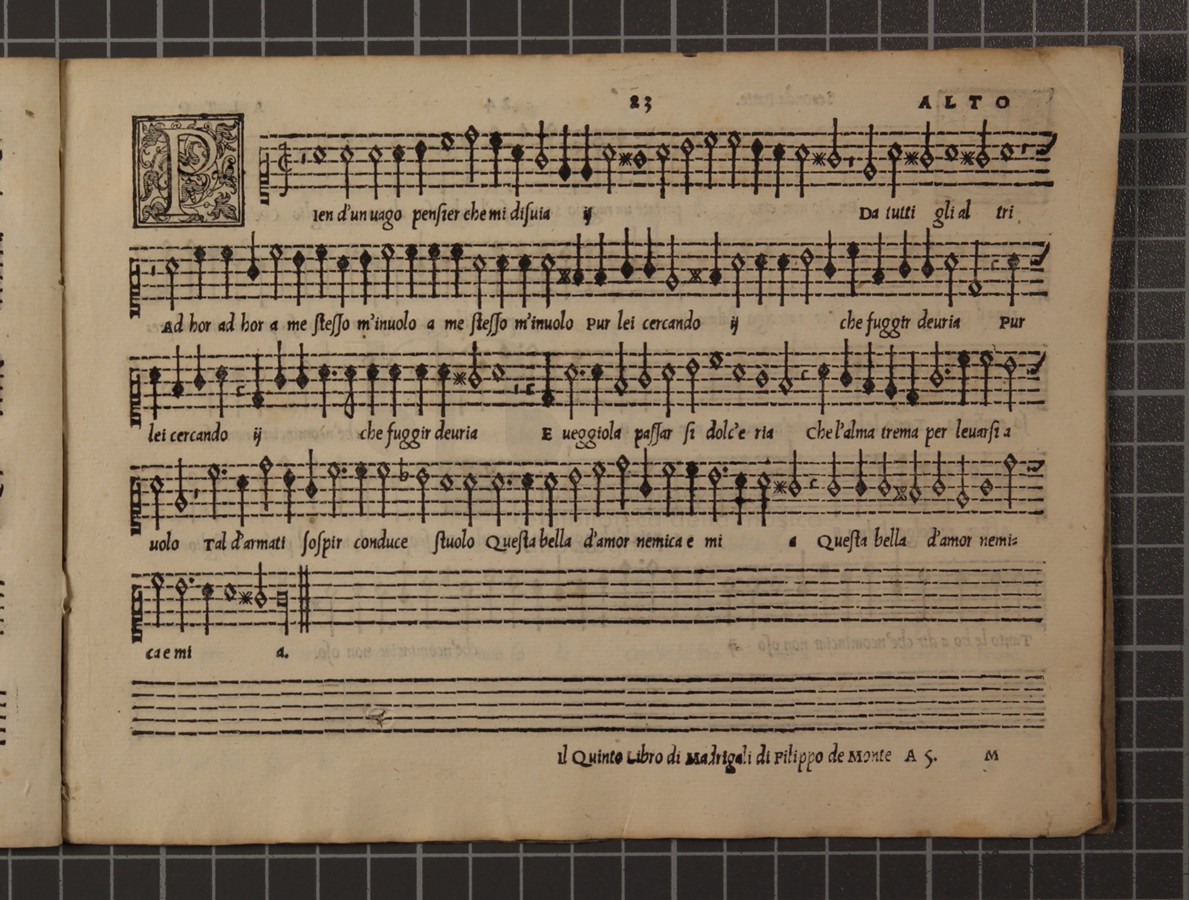 23 ALTO
P Ien d'un uago pensier che mi disuia ij Da tutti gli al tri
Ad hor ad hor a me stesso m'inuolo a me stesso m'inuolo Pur lei cercando ij che fuggir deuria Pur
lei cercando ij che fuggir deuria E ueggiola passar si dolc'e ria Che l'alma trema per leuarsi a
uolo Tal d'armati sospir conduce stuolo Questa bella d'amor nemica e mi a Questa bella d'amor nemi=
ca e mi a.
Il Quinto Libro di Madrigali di Filippo de Monte A 5. M